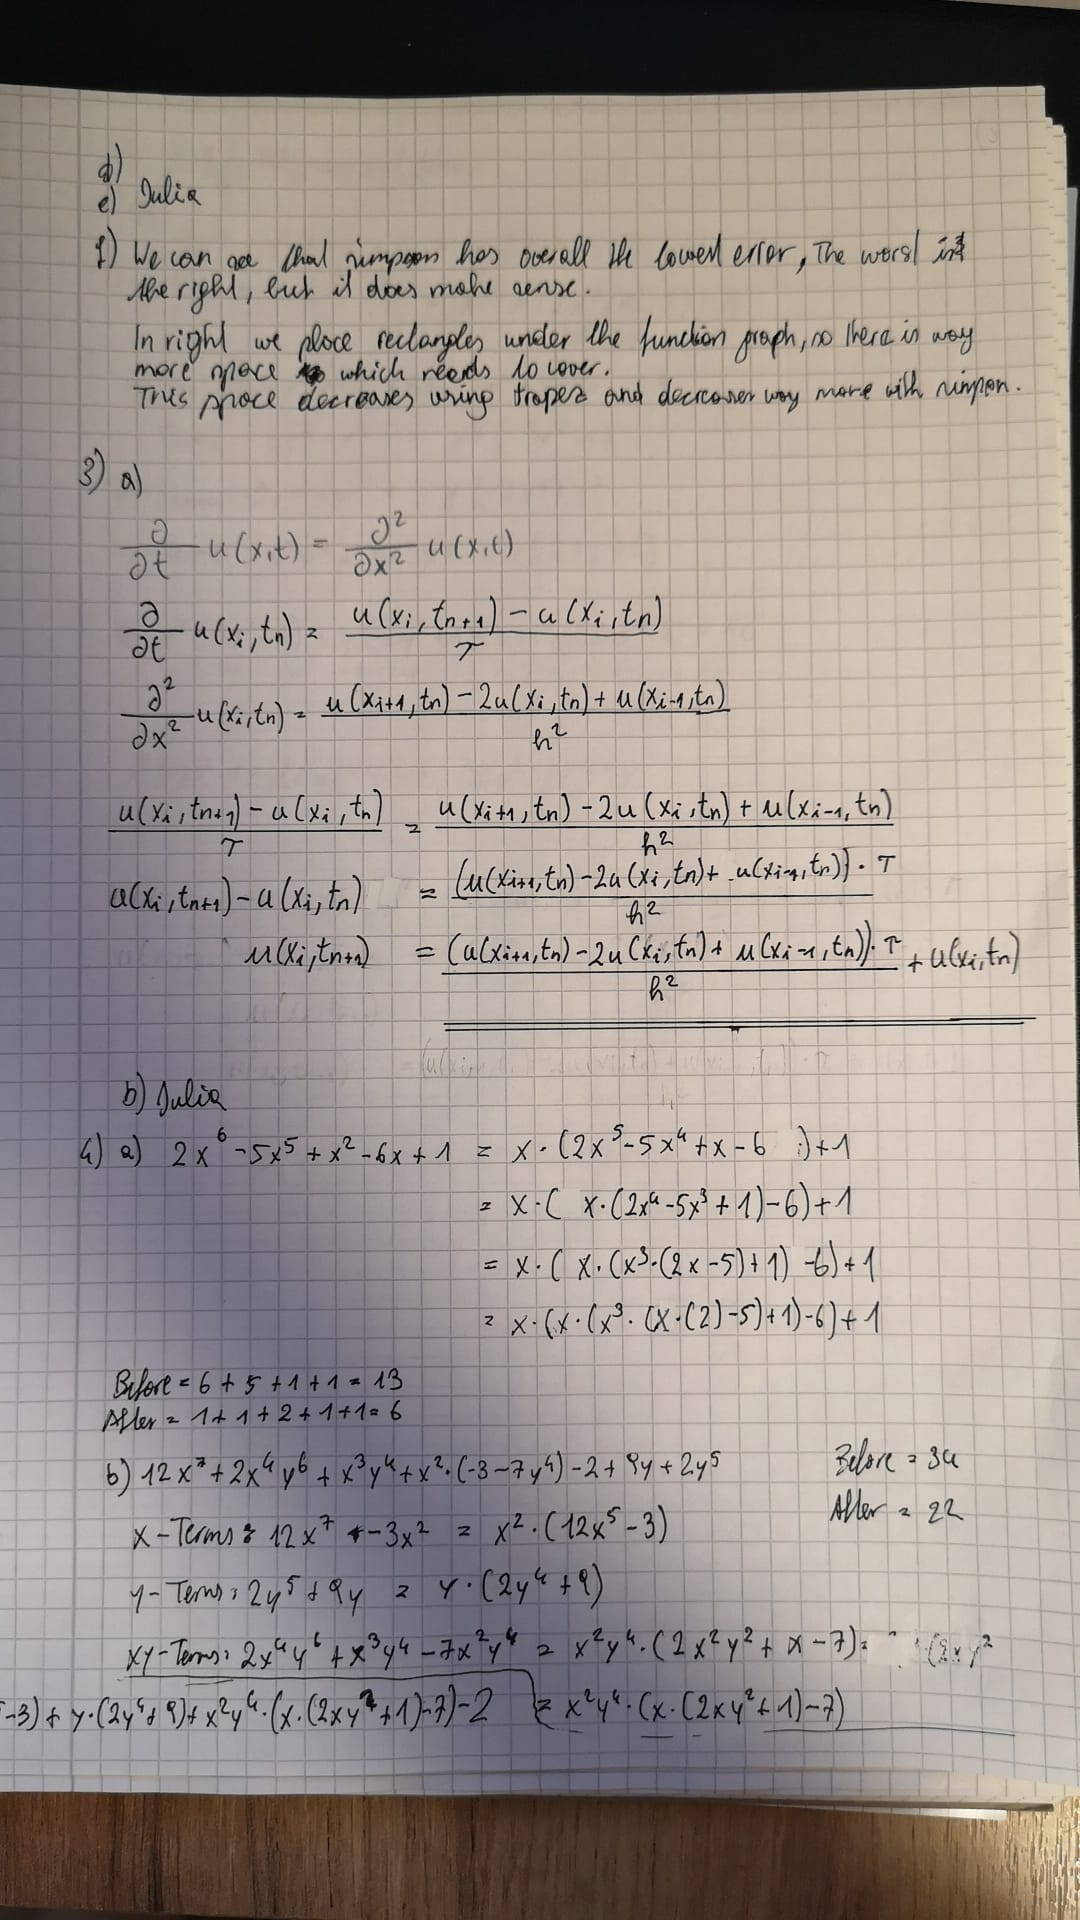 d)
e) Julia
f) We can see that simpson has overall the lowest error, The worst is
the right, but it does make sense.
In right we place rectangles under the function graph, so there is way
more space which needs to cover.
This space decreases using trapez and decreases way more with simpson.
3) a)
∂/∂t u(x,t) = ∂²/∂x² u(x,t)
∂/∂t u(xᵢ,tₙ) = (u(xᵢ,tₙ₊₁) - u(xᵢ,tₙ))/τ
∂²/∂x² u(xᵢ,tₙ) = (u(xᵢ₊₁,tₙ) - 2u(xᵢ,tₙ) + u(xᵢ₋₁,tₙ))/h²
(u(xᵢ,tₙ₊₁) - u(xᵢ,tₙ))/τ = (u(xᵢ₊₁,tₙ) - 2u(xᵢ,tₙ) + u(xᵢ₋₁,tₙ))/h²
u(xᵢ,tₙ₊₁) - u(xᵢ,tₙ) = ((u(xᵢ₊₁,tₙ) - 2u(xᵢ,tₙ) + u(xᵢ₋₁,tₙ))·τ)/h²
u(xᵢ,tₙ₊₁) = ((u(xᵢ₊₁,tₙ) - 2u(xᵢ,tₙ) + u(xᵢ₋₁,tₙ))·τ)/h² + u(xᵢ,tₙ)
b) Julia
4) a) 2x⁶ - 5x⁵ + x² - 6x + 1 = x·(2x⁵ - 5x⁴ + x - 6) + 1
= x·( x·(2x⁴ - 5x³ + 1) - 6) + 1
= x·( x·(x³·(2x - 5) + 1) - 6) + 1
= x·(x·(x³·(x·(2) - 5) + 1) - 6) + 1
Before = 6 + 5 + 1 + 1 = 13
After = 1 + 1 + 2 + 1 + 1 = 6
b) 12x⁷ + 2x⁴y⁶ + x³y⁴ + x²·(-3 - 7y⁴) - 2 + 9y + 2y⁵
Before = 34
After = 22
x-Terms: 12x⁷ - 3x² = x²·(12x⁵ - 3)
y-Terms: 2y⁵ + 9y = y·(2y⁴ + 9)
xy-Terms: 2x⁴y⁶ + x³y⁴ - 7x²y⁴ = x²y⁴·(2x²y² + x - 7) =
= x²y⁴·(x·(2xy² + 1) - 7)
-3) + y·(2y⁴ + 9) + x²y⁴·(x·(2xy² + 1) - 7) - 2